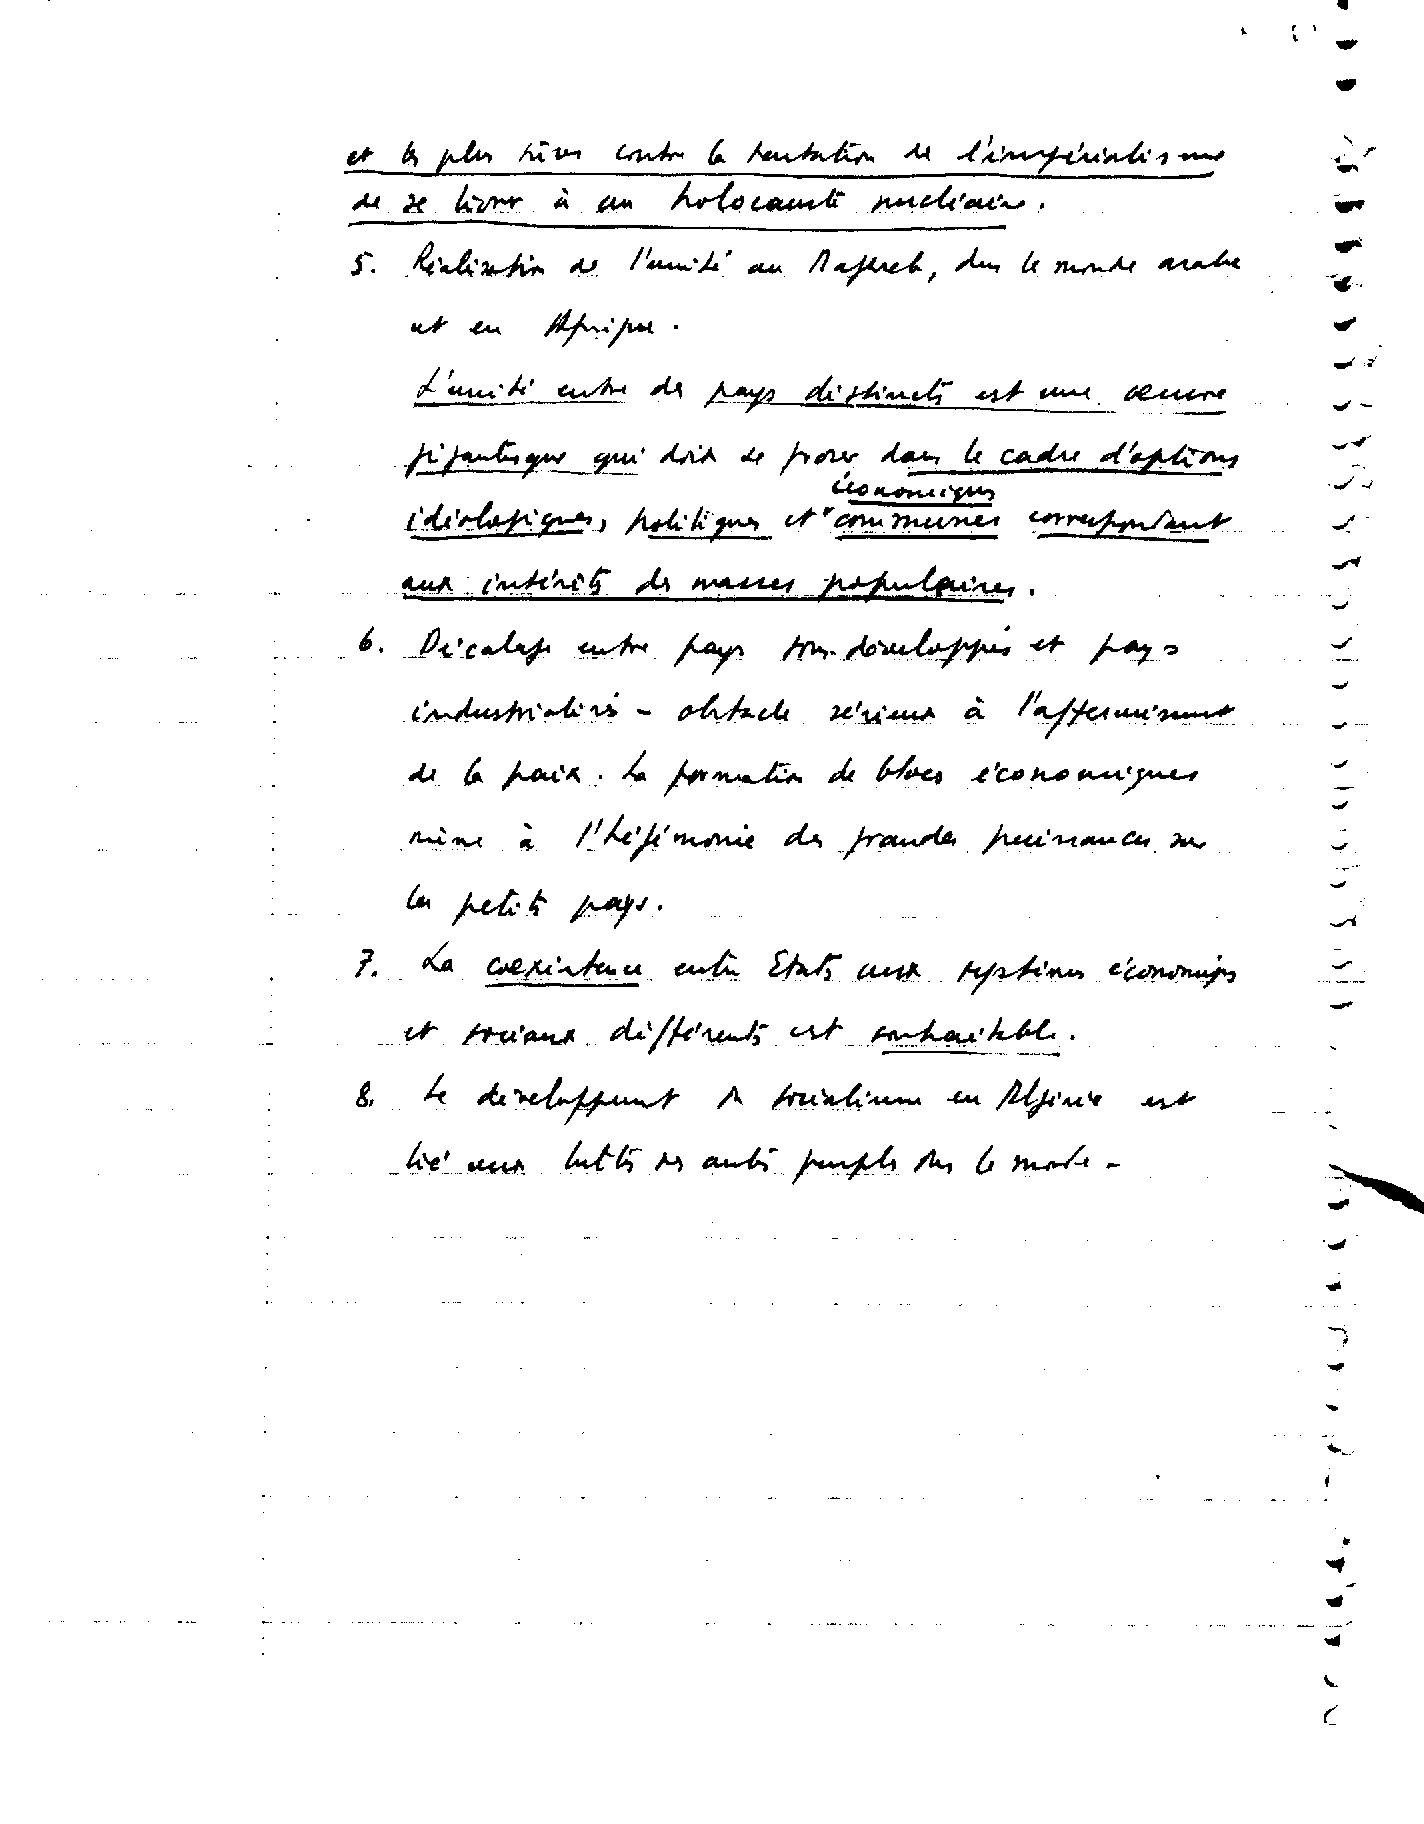 et les plus sûres contre la tentation de l'impérialisme
de se livrer à un holocauste nucléaire.
5. Réalisation de l'unité au Maghreb, dans le monde arabe
et en Afrique.
L'unité entre des pays distincts est une œuvre
gigantesque qui doit se poser dans le cadre d'options
économiques
idéologiques, politiques et communes correspondant
aux intérêts des masses populaires.
6. Décalage entre pays sous-développés et pays
industrialisés - obstacle sérieux à l'affermissement
de la paix. La formation de blocs économiques
mène à l'hégémonie des grandes puissances sur
les petits pays.
7. La coexistence entre Etats aux systèmes économiques
et sociaux différents est souhaitable.
8. Le développement du socialisme en Algérie est
lié aux luttes des autres peuples dans le monde -